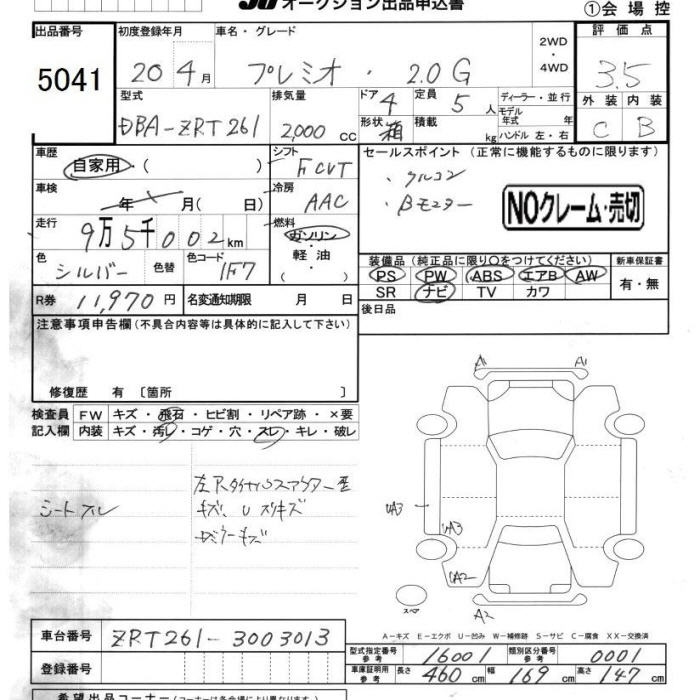 オークション出品申込書
①会場控
出品番号 5041
初度登録年月 20 4月
車名・グレード プレミオ・2.0G
2WD・4WD
評価点 3.5
外装 内装
C B
型式 DBA-ZRT261
排気量 2,000 CC
ドア 4
形状 箱
定員 5人
積載 kg
ディーラー・並行
モデル年式 年
ハンドル 左・右
車歴 自家用・( )
シフト FCVT
セールスポイント (正常に機能するものに限ります)
・アルコン
・Bモニター
NOクレーム・売切
車検 年 月(日)
冷房 AAC
走行 9万5千002km
燃料 ガソリン・軽油・( )
色 シルバー
色替
色コード 1F7
装備品(純正品に限り○をつけてください)
PS PW ABS エアB AW
SR ナビ TV カワ
新車保証書 有・無
R券 11,970円
名変通知期限 月 日
後日品
注意事項申告欄(不具合内容等は具体的に記入して下さい)
修復歴 有〔箇所 〕
検査員記入欄
FW キズ・飛石・ヒビ割・リペア跡・×要
内装 キズ・汚レ・コゲ・穴・スレ・キレ・破レ
シートスレ
キズ、U スリキズ
A1 A1
UA3
UA3
UA2
A2
スペア
A-キズ E-エクボ U-凹み W-補修跡 S-サビ C-腐食 XX-交換済
車台番号 ZRT261-3003013
型式指定番号 参考 16001
類別区分番号 参考 0001
登録番号
車庫証明用 参考 長さ 460cm 幅 169cm 高さ 147cm
希望出品コーナー(コーナーは各会場により異なります)